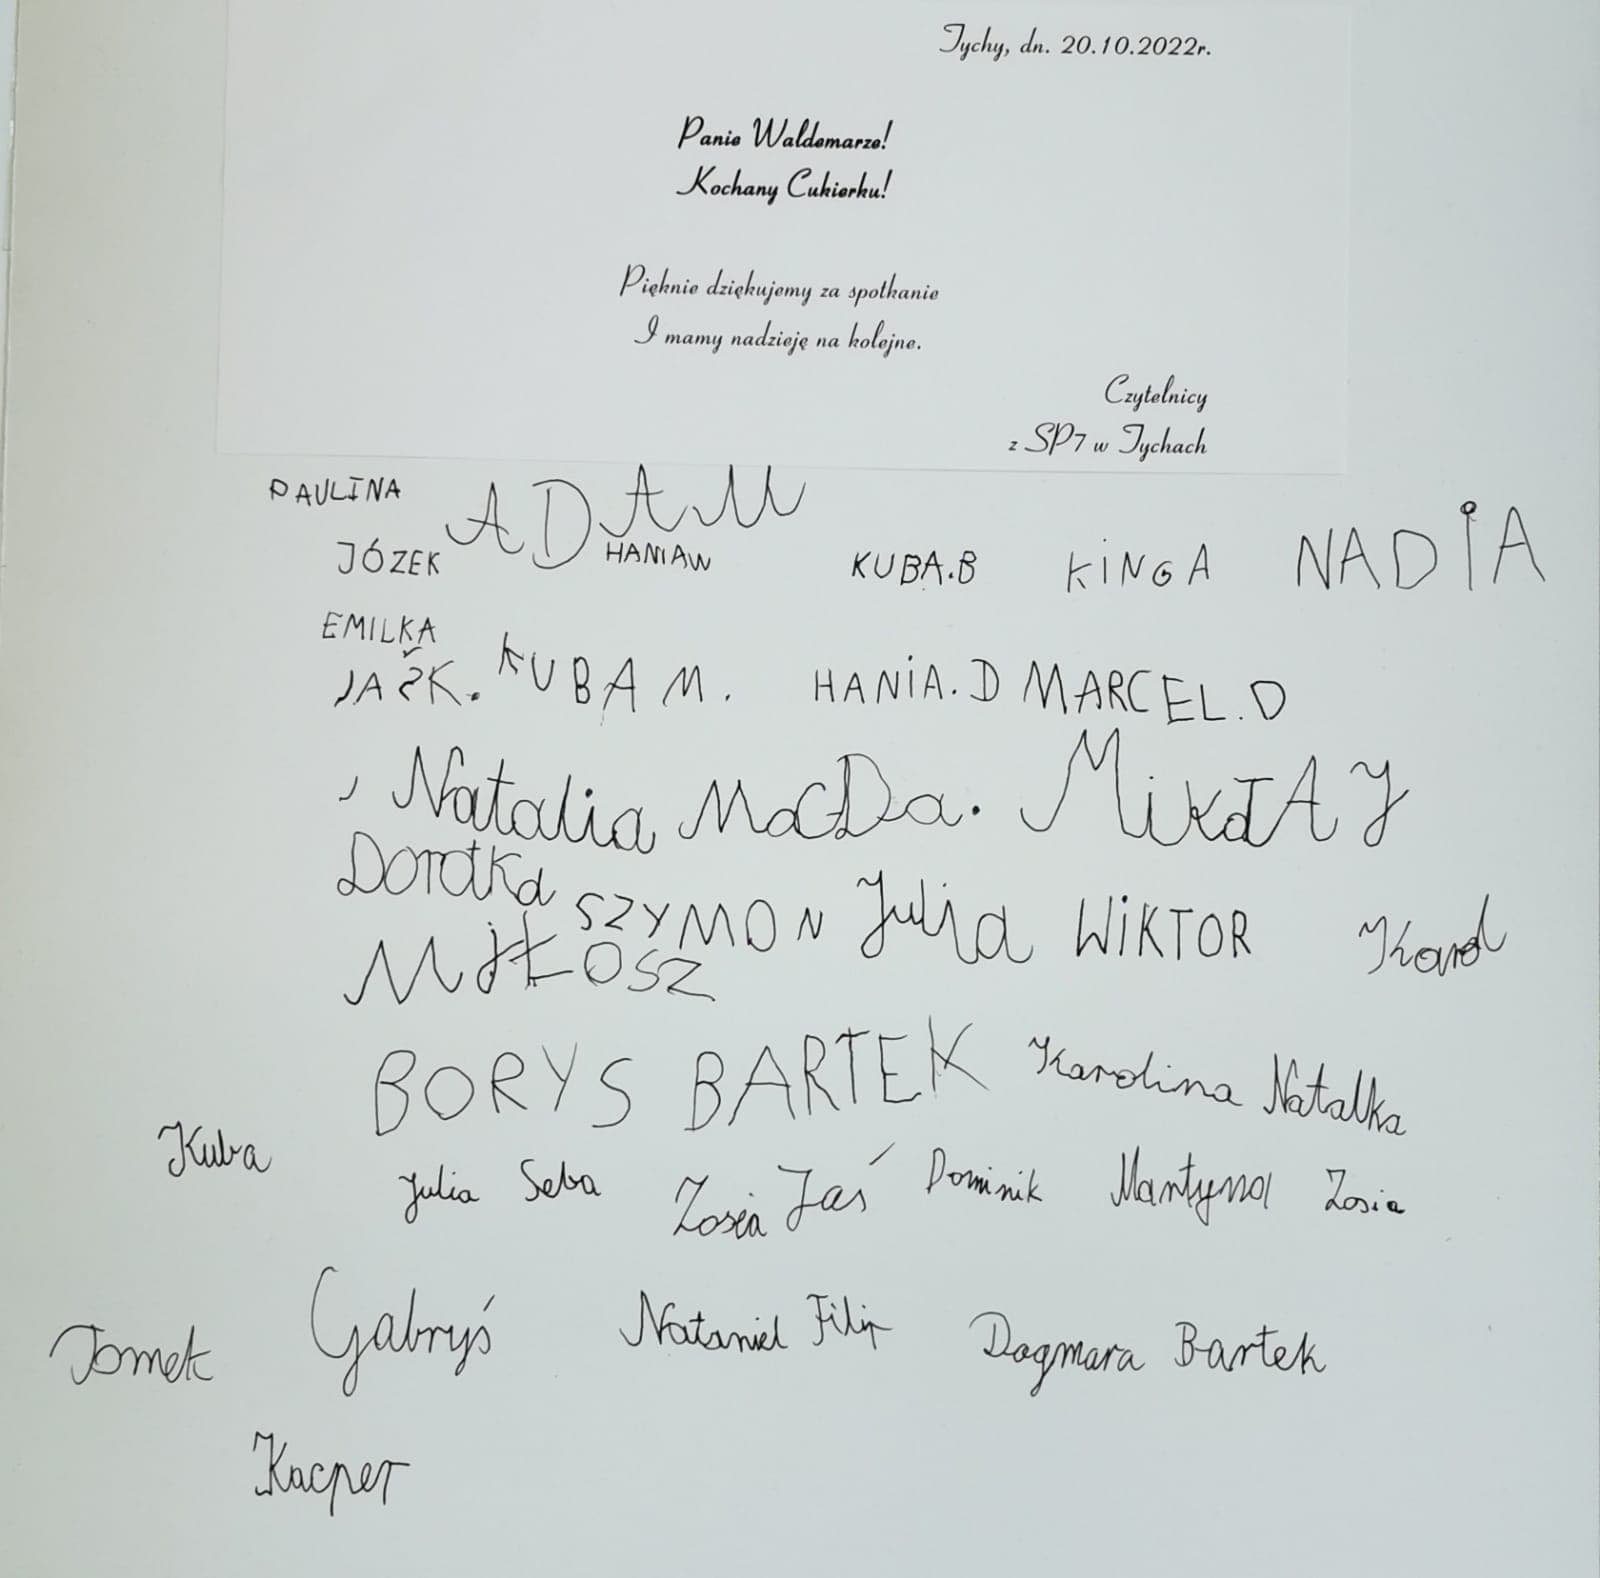 Tychy, dn. 20.10.2022r.
Panie Waldemarze!
Kochany Cukierku!
Pięknie dziękujemy za spotkanie
I mamy nadzieję na kolejne.
Czytelnicy
z SP7 w Tychach
PAULINA ADAM
JÓZEK HANIAW KUBA.B KINGA NADIA
EMILKA
KUBA M. HANIA.D MARCEL.D
Natalia MaGDa. MikołAJ
Dorotka SZYMON Julia WiKTOR Karol
MiŁOSZ
BORYS BARTEK Karolina Natalka
Kuba Julia Seba Zosia Jaś Dominik Martyna Zosia
Tomek Gabryś Nataniel Filip Dagmara Bartek
Kacper